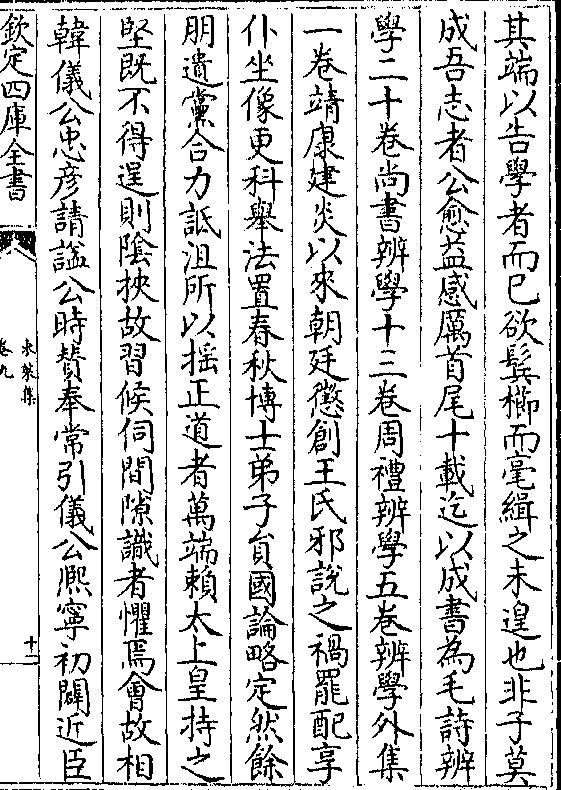 其端以告學者而已欲髮櫛而毫緝之未遑也非子莫
成吾志者公愈益感厲首尾十載迄以成書為毛詩辨
學二十卷尚書辨學十三卷周禮辨學五卷辨學外集
一卷靖康建炎以來朝廷懲創王氏邪說之禍罷配享
仆坐像更科舉法置春秋博士弟子員國論略定然餘
朋遺黨合力詆沮所以揺正道者萬端賴太上皇持之
堅既不得逞則陰挾故習候伺間隙識者懼焉會故相
韓儀公忠彦請諡公時賛奉常引儀公熈寧初闢近臣
欽定四庫全書
東萊集
卷九
十二